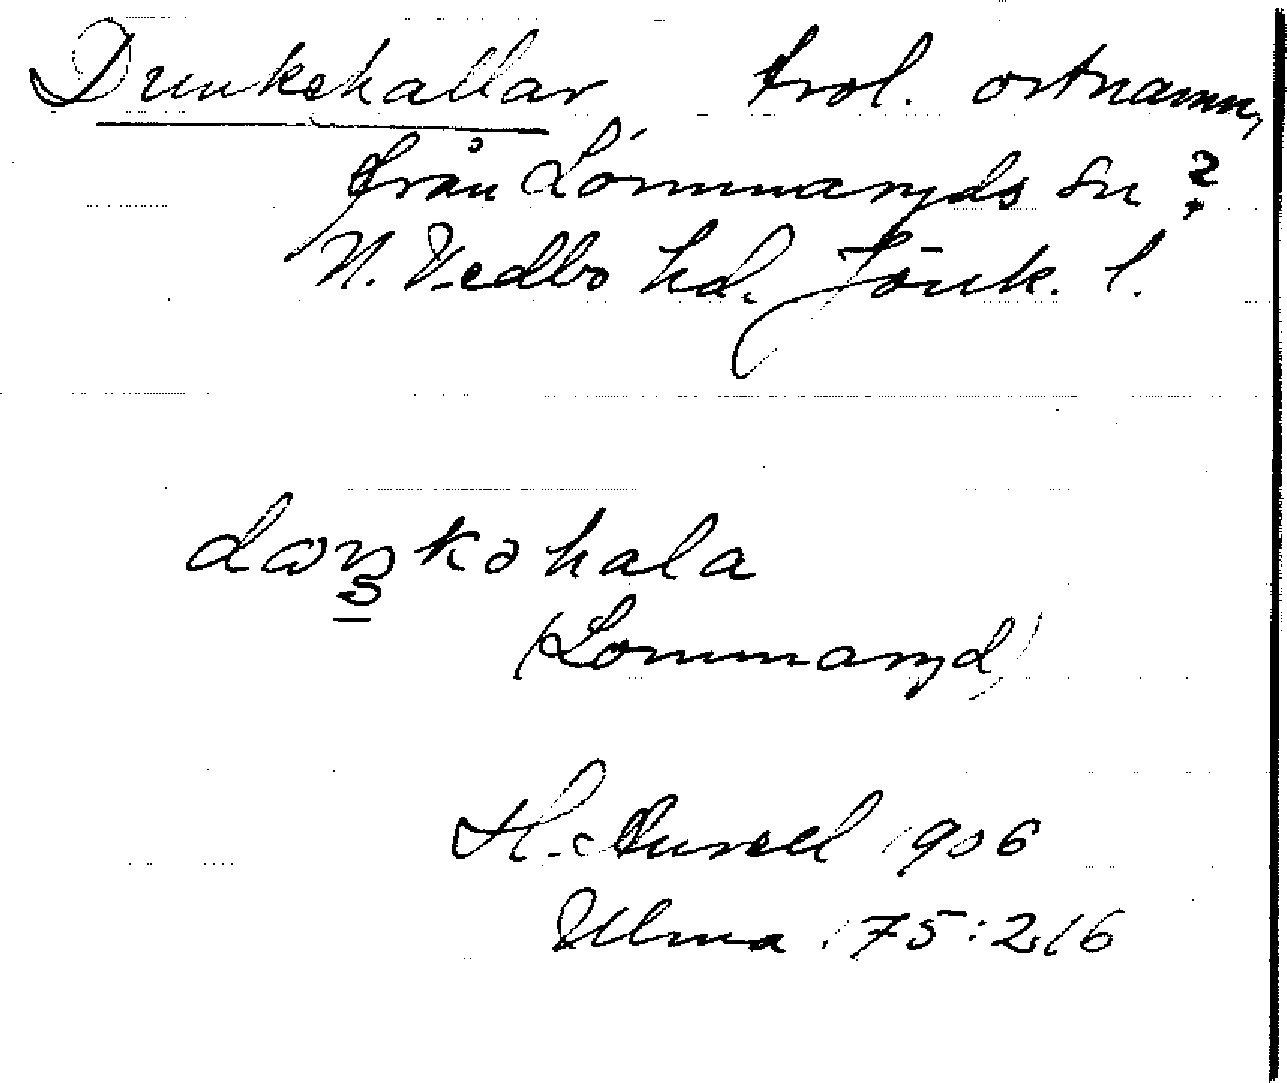 Dunkehallar, trol. ortnamn,
från Lommaryds sn ?
N. Vedbo hd. Jönk. l.
kəhala
(Lommaryd)
H. 1906
Ulma 75:216